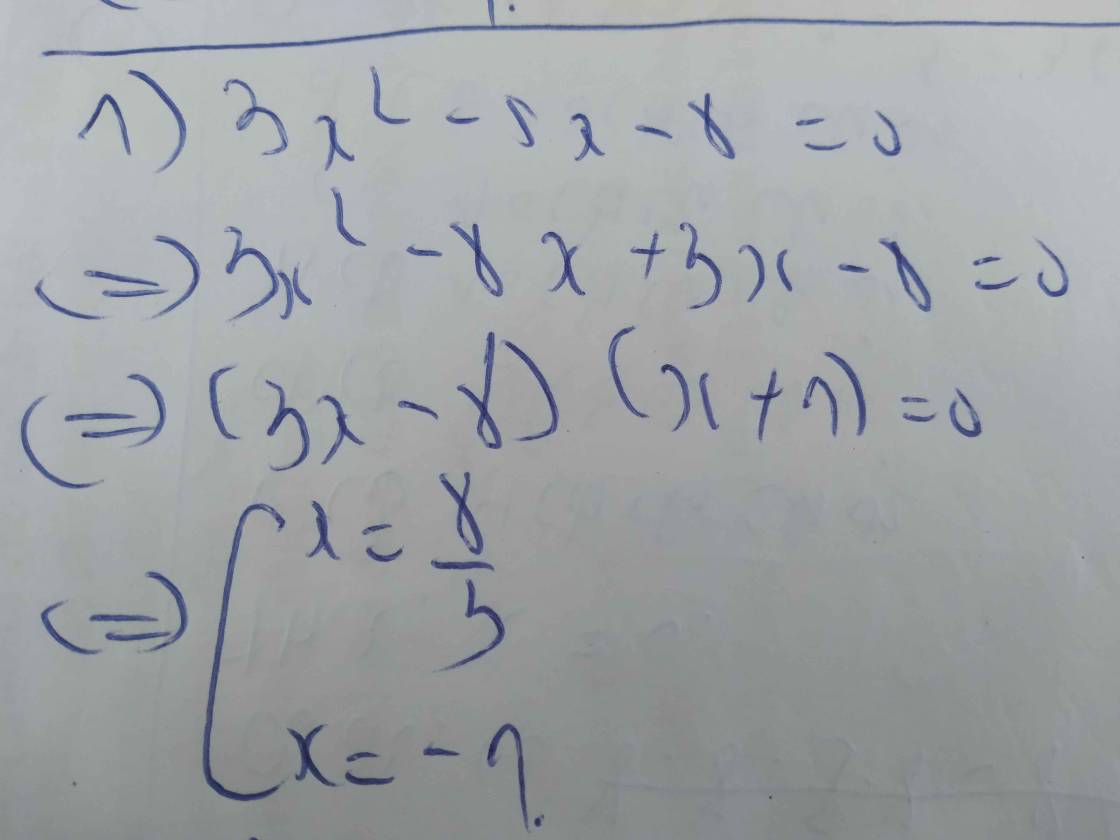 1) 3x² - 5x - 8 = 0
(=) 3x² - 8x + 3x - 8 = 0
(=) (3x - 8) (x + 1) = 0
(=) [ x = 8/3
x = -1.